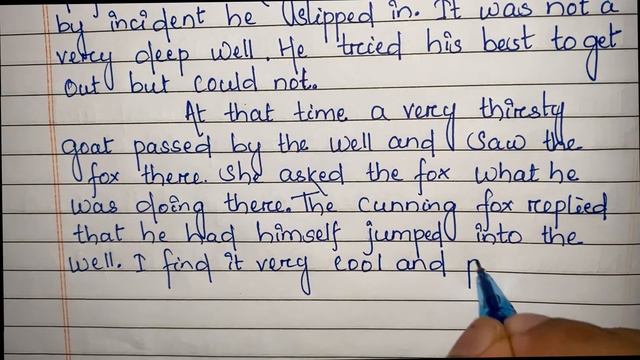 by incident he slipped in. It was not a
very deep well. He tried his best to get
out but could not.
At that time a very thirsty
goat passed by the well and saw the
fox there. She asked the fox what he
was doing there. The cunning fox replied
that he had himself jumped into the
well. I find it very cool and p